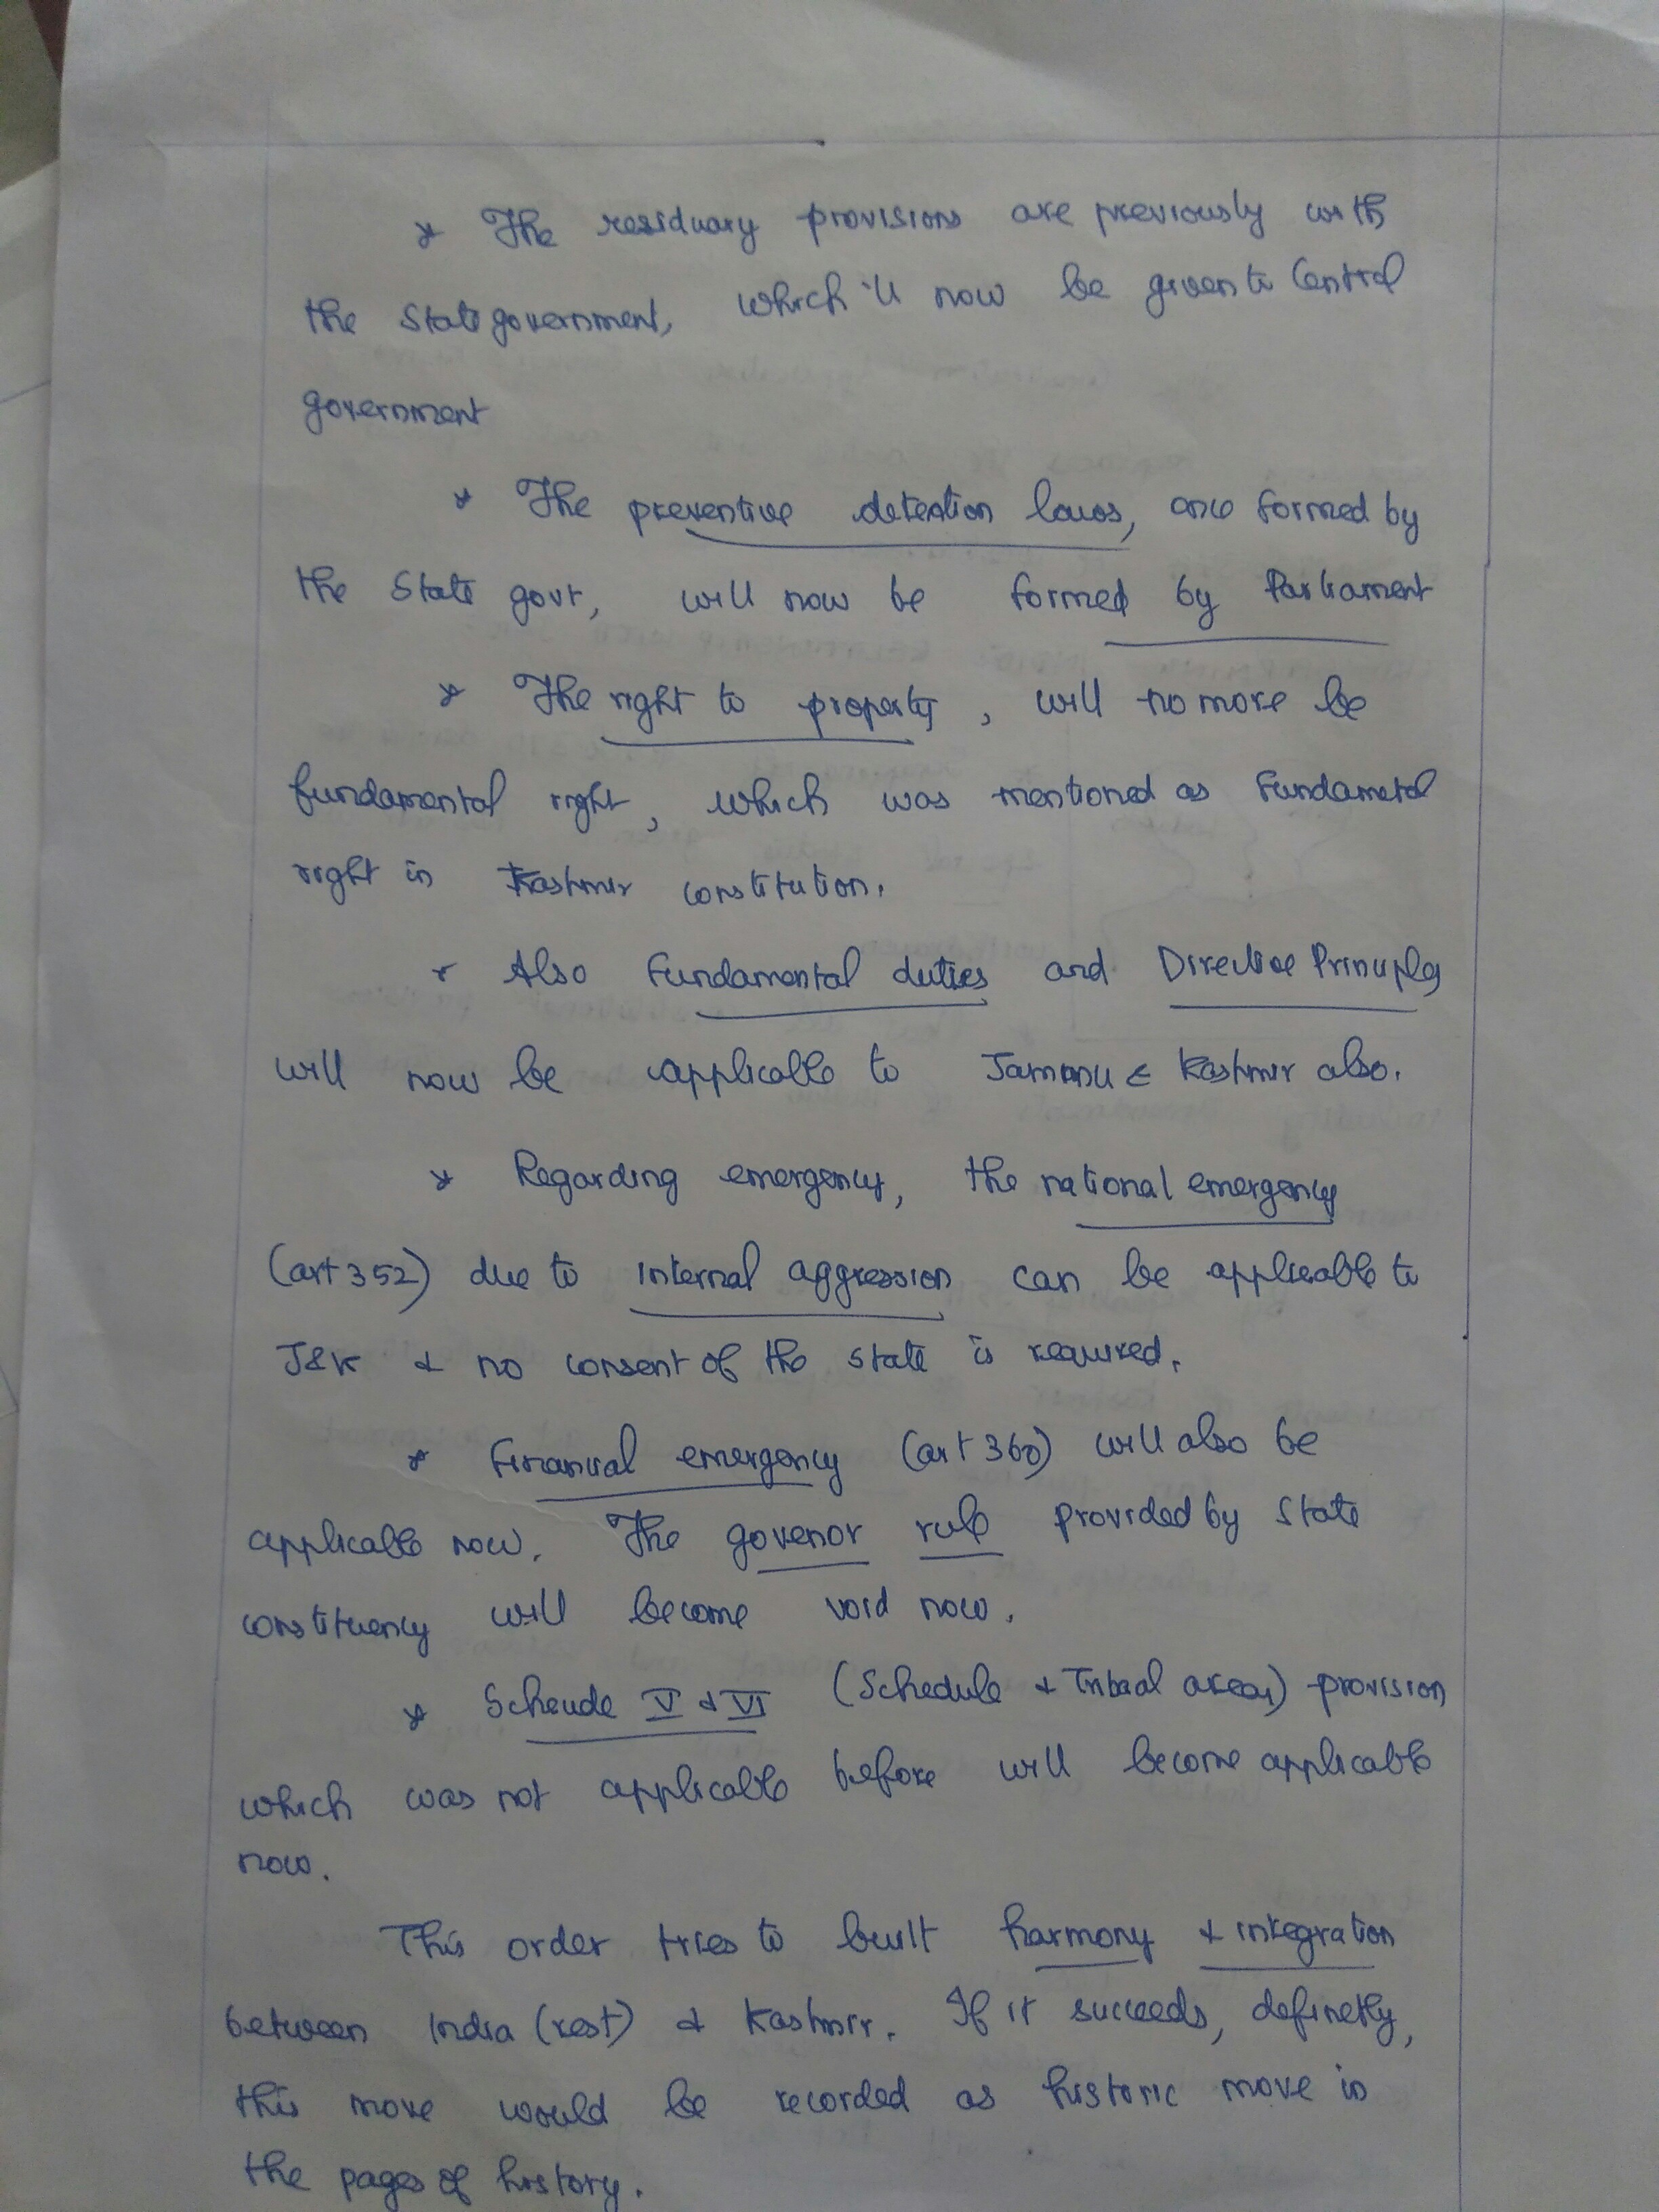 * The residuary provisions are previously with
the State government, which'll now be given to Central
government
* The preventive detention laws, once formed by
the State govt, will now be formed by Parliament
* The right to property, will no more be
fundamental right, which was mentioned as Fundametal
right in Kashmir constitution.
* Also Fundamental duties and Directive Principles
will now be applicable to Jammu & Kashmir also.
* Regarding emergency, the national emergency
(art 352) due to internal aggression can be applicable to
J&K & no consent of the state is required.
* Financial emergency (art 360) will also be
applicable now. The govenor rule provided by State
constituency will become void now.
* Scheude V & VI (Schedule & Tribal areas) provision
which was not applicable before will become applicable
now.
This order tries to built harmony & integration
between India (rest) & Kashmir. If it succeeds, definetly,
this move would be recorded as historic move in
the pages of history.